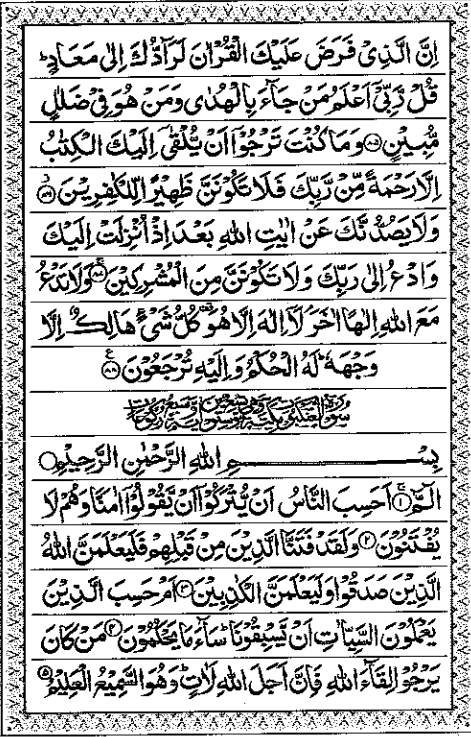 اِنَّ الَّذِیْ فَرَضَ عَلَیْكَ الْقُرْاٰنَ لَرَآدُّكَ اِلٰی مَعَادٍ ؕ
قُلْ رَّبِّیْۤ اَعْلَمُ مَنْ جَآءَ بِالْهُدٰی وَمَنْ هُوَ فِیْ ضَلٰلٍ
مُّبِیْنٍ ﴿۸۵﴾ وَمَا كُنْتَ تَرْجُوْۤا اَنْ یُّلْقٰۤی اِلَیْكَ الْكِتٰبُ
اِلَّا رَحْمَةً مِّنْ رَّبِّكَ فَلَا تَكُوْنَنَّ ظَهِیْرًا لِّلْكٰفِرِیْنَ ﴿۸۶﴾
وَلَا یَصُدُّنَّكَ عَنْ اٰیٰتِ اللّٰهِ بَعْدَ اِذْ اُنْزِلَتْ اِلَیْكَ
وَادْعُ اِلٰی رَبِّكَ وَلَا تَكُوْنَنَّ مِنَ الْمُشْرِكِیْنَ ﴿۸۷﴾ وَلَا تَدْعُ
مَعَ اللّٰهِ اِلٰهًا اٰخَرَ ۘ لَاۤ اِلٰهَ اِلَّا هُوَ ۟ كُلُّ شَیْءٍ هَالِكٌ اِلَّا
وَجْهَهٗ ؕ لَهُ الْحُكْمُ وَاِلَیْهِ تُرْجَعُوْنَ ﴿۸۸﴾
بِسْمِ اللّٰهِ الرَّحْمٰنِ الرَّحِیْمِ
الٓمّٓ ﴿۱﴾ اَحَسِبَ النَّاسُ اَنْ یُّتْرَكُوْۤا اَنْ یَّقُوْلُوْۤا اٰمَنَّا وَهُمْ لَا
یُفْتَنُوْنَ ﴿۲﴾ وَلَقَدْ فَتَنَّا الَّذِیْنَ مِنْ قَبْلِهِمْ فَلَیَعْلَمَنَّ اللّٰهُ
الَّذِیْنَ صَدَقُوْا وَلَیَعْلَمَنَّ الْكٰذِبِیْنَ ﴿۳﴾ اَمْ حَسِبَ الَّذِیْنَ
یَعْمَلُوْنَ السَّیِّاٰتِ اَنْ یَّسْبِقُوْنَا ؕ سَآءَ مَا یَحْكُمُوْنَ ﴿۴﴾ مَنْ كَانَ
یَرْجُوْا لِقَآءَ اللّٰهِ فَاِنَّ اَجَلَ اللّٰهِ لَاٰتٍ ؕ وَهُوَ السَّمِیْعُ الْعَلِیْمُ ﴿۵﴾